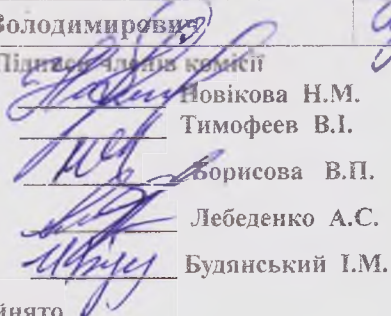 Володимирович
Підписи членів комісії
Новікова Н.М.
Тимофеев В.І.
Борисова В.П.
Лебеденко А.С.
Будянський І.М.
йнято